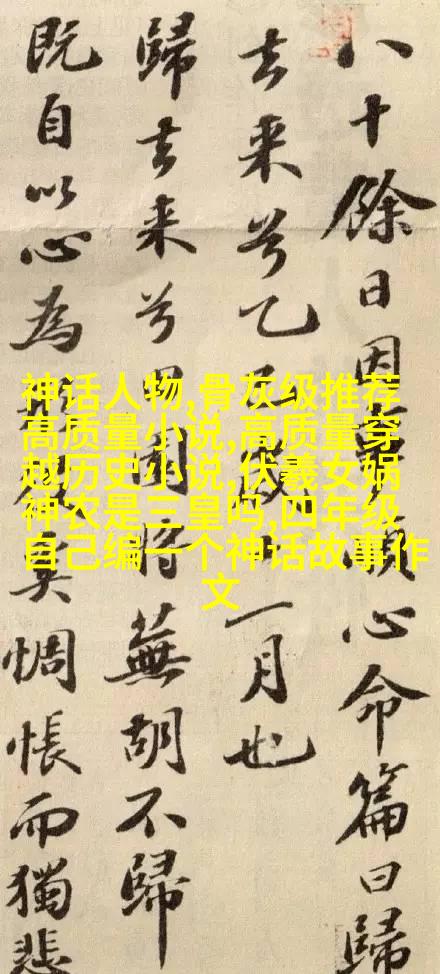 八十餘日因順心命篇曰歸
去来兮乙一月也
歸去来兮園将蕪胡不歸
既自以心為奚惆悵而獨悲
神话人物,骨灰级推荐
高质量小说,高质量穿
越历史小说,伏羲女娲
神农是三皇吗,四年级
自己编一个神话故事作
文